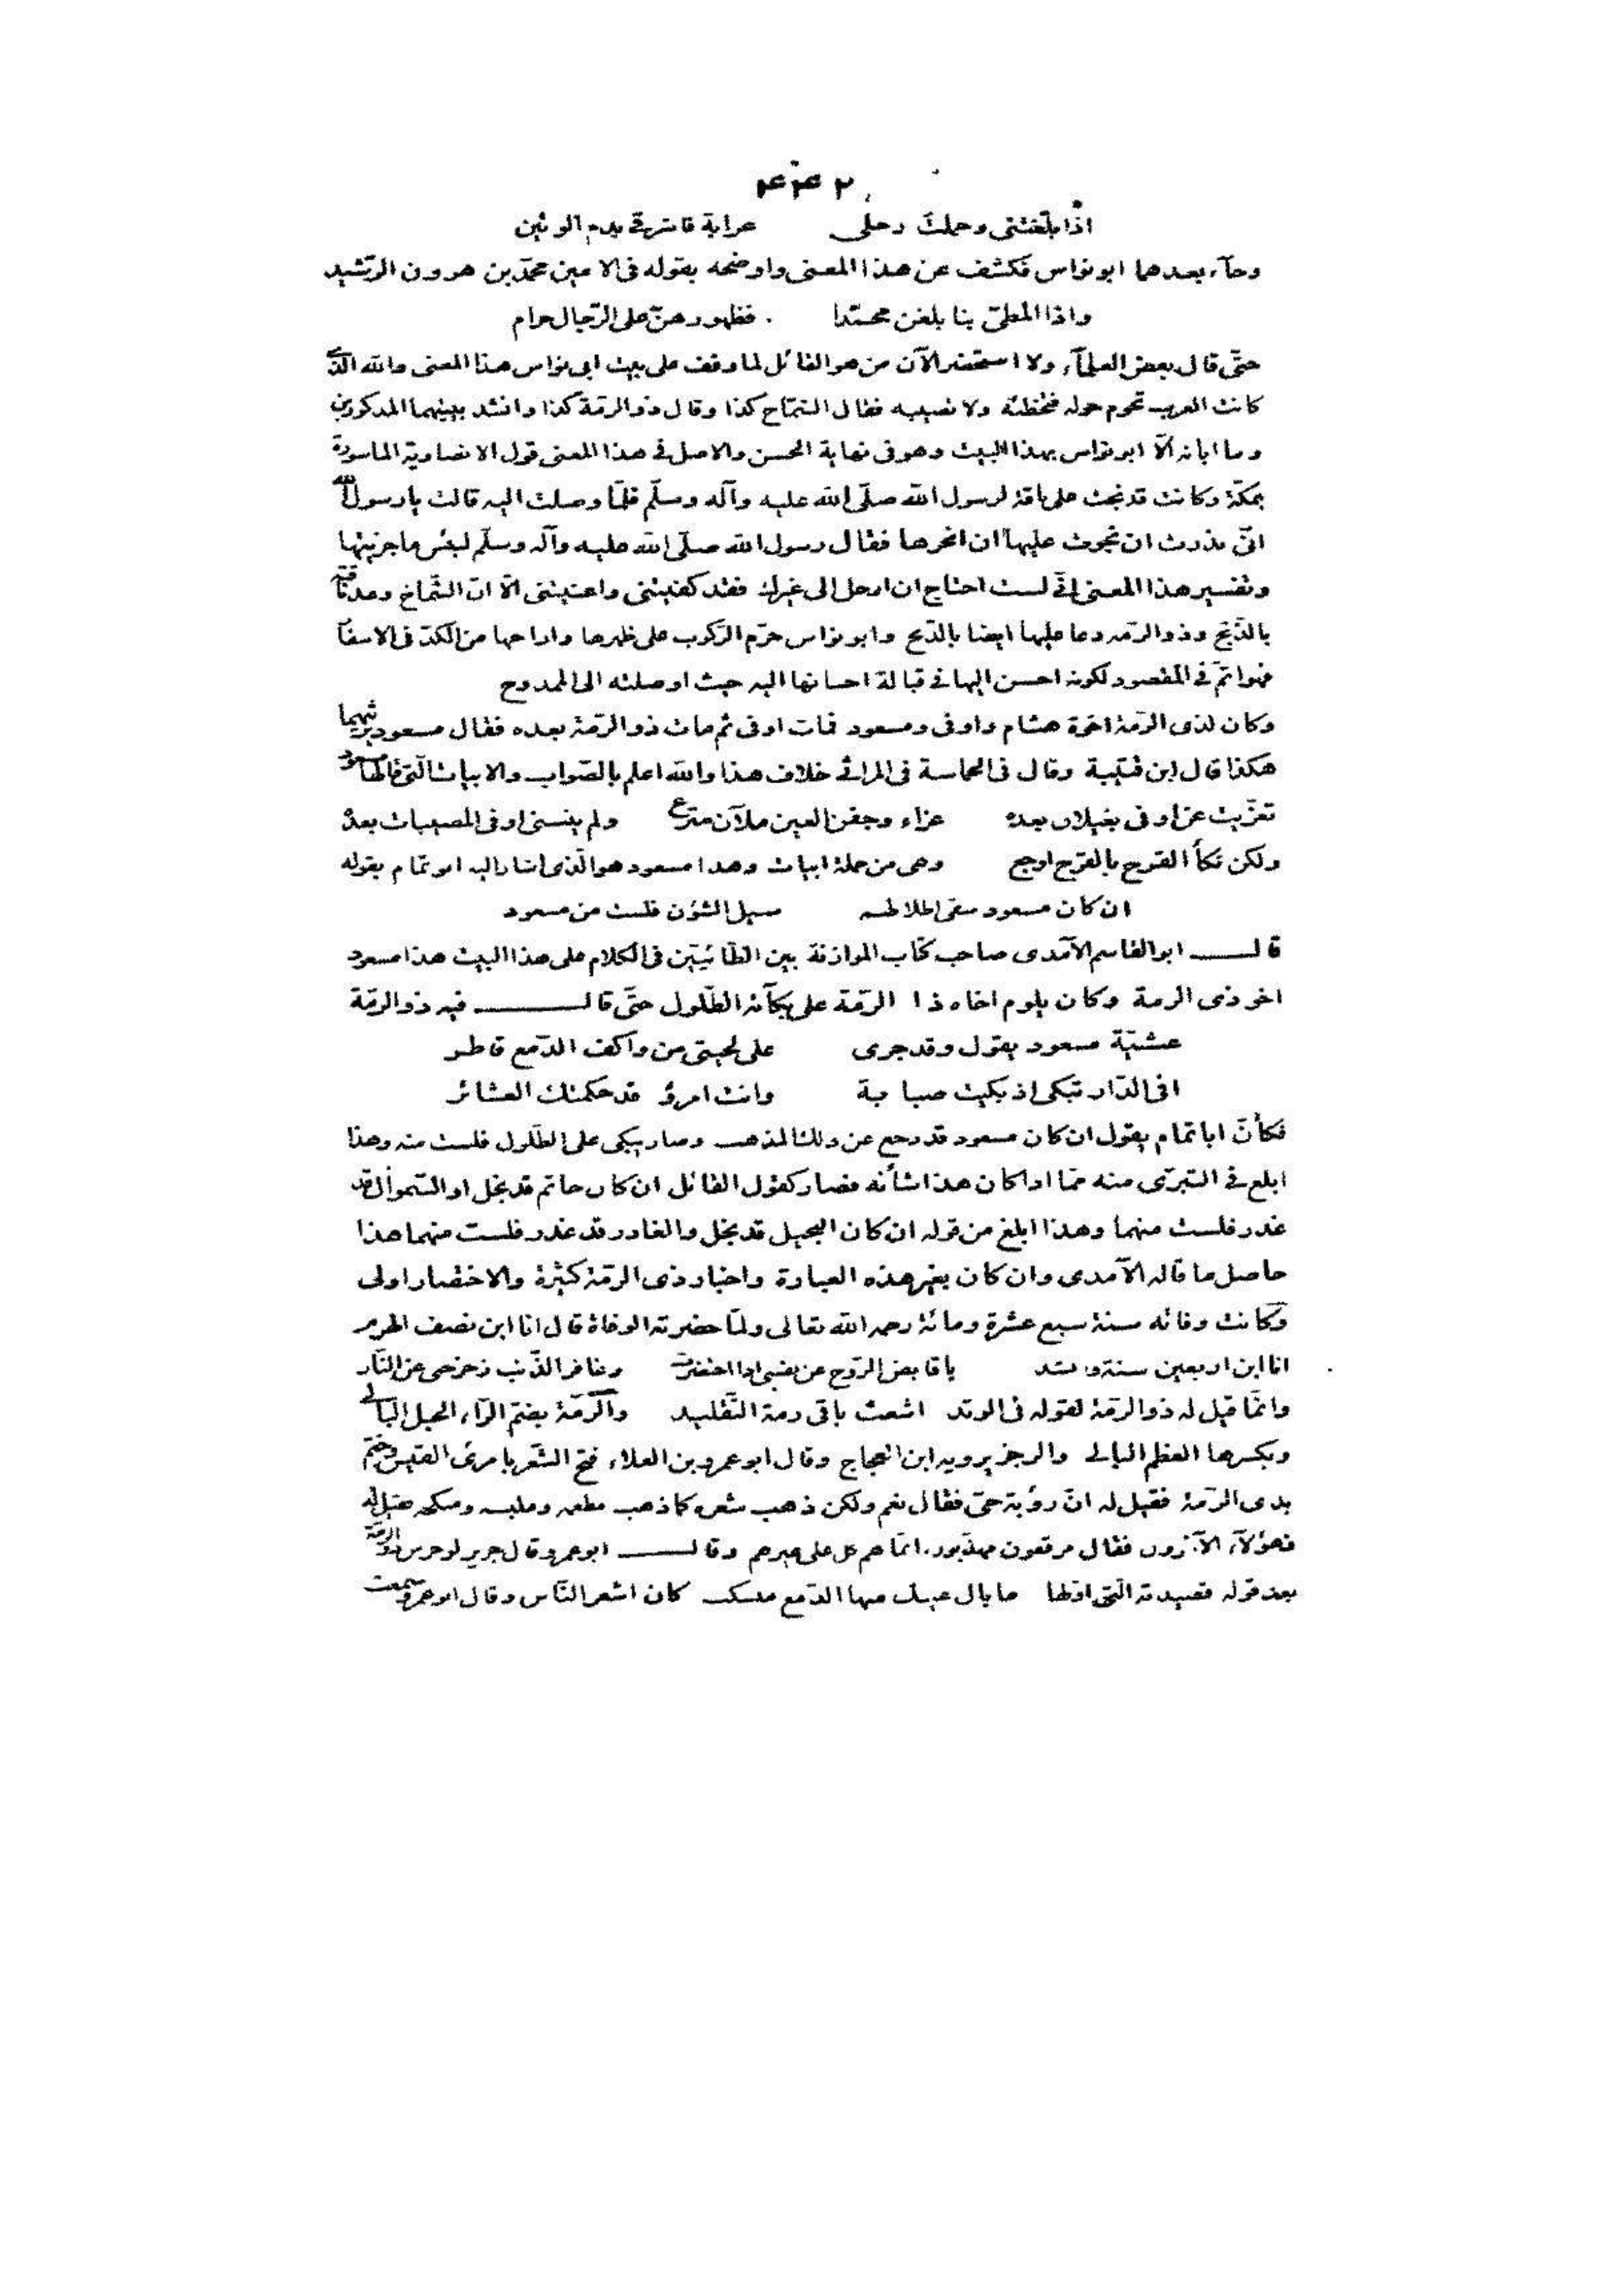 ٤٤٢
اذا بلّغتنى وحملت رحلى عرابة فاشرقى بدم الوتين
وجآء بعدهما ابو نواس فكشف عن هذا المعنى واوضحه بقوله فى الامين محمّد بن هرون الرّشيد
واذا المطىّ بنا بلغن محمّدا فظهورهنّ على الرّجال حرام
حتّى قال بعض العلمآء ولا استحضر الآن من هو القائل لما وقف على بيت ابى نواس هذا المعنى والله الذى
كانت العرب تحوم حوله فتخطئه ولا تصيبه فقال الشمّاخ كذا وقال ذو الرمّة كذا وانشد بيتيهما المذكورين
وما ابانه الّا ابو نواس بهذا البيت وهو فى نهاية الحسن والاصل فى هذا المعنى قول الانصاريّة الماسورة
بمكّة وكانت قد نجت على ناقة لرسول الله صلّى الله عليه وآله وسلّم فلمّا وصلت اليه قالت يا رسول الله
انّى نذرت ان نجوت عليها ان انحرها فقال رسول الله صلّى الله عليه وآله وسلّم لبئس ما جزيتها
وتفسير هذا المعنى انّى لست احتاج ان ارحل الى غيرك فقد كفيتنى واغنيتنى الّا انّ الشّمّاخ وعد ناقته
بالذّبح وذو الرمّه دعا عليها ايضا بالذّبح وابو نواس حرّم الرّكوب على ظهرها واراحها من الكدّ فى الاسفار
فهو اتمّ فى المقصود لكونه احسن اليها فى قبالة احسانها اليه حيث اوصلته الى الممدوح
وكان لذى الرّمّة اخوة هشام واوفى ومسعود فمات اوفى ثم مات ذو الرّمّة بعده فقال مسعود يرثيهما
هكذا قال ابن قتيبة وقال فى الحماسة فى المراثى خلاف هذا والله اعلم بالصّواب والابيات الّتى قالها مسعود
تعزّيت عن اوفى بغيلان بعده عزاء وجفن العين ملآن مترع ولم ينسنى اوفى المصيبات بعده
ولكن نكأ القرح بالقرح اوجع وهى من جملة ابيات وهذا مسعود هو الّذى اشار اليه ابو تمّام بقوله
ان كان مسعود سقى اطلالهم سبل الشؤن فلست من مسعود
قال ابو القاسم الآمدى صاحب كتاب الموازنة بين الطّائيّين فى الكلام على هذا البيت هذا مسعود
اخو ذى الرمة وكان يلوم اخاه ذا الرّمّة على بكآئه الطّلول حتّى قال فيه ذو الرمّة
عشيّة مسعود يقول وقد جرى على لحيتى من واكف الدّمع قاطر
افى الدّار تبكى اذ بكيت صبابة وانت امرؤ قد حكمتك العشائر
فكأنّ ابا تمام يقول ان كان مسعود قد رجع عن ذلك المذهب وصار يبكى على الطّلول فلست منه وهذا
ابلغ فى التبرّى منه ممّا اذا كان هذا شأنه فصار كقول القائل ان كان حاتم قد بخل او السّموأل قد
غدر فلست منهما وهذا ابلغ من قوله ان كان البخيل قد بخل والغادر قد غدر فلست منهما هذا
حاصل ما قاله الآمدى وان كان بغير هذه العبارة واخبار ذى الرمّة كثيرة والاختصار اولى
وكانت وفاته سنة سبع عشرة ومائة رحمه الله تعالى ولمّا حضرته الوفاة قال انا ابن نصف الهرم
انا ابن اربعين سنة وانشد يا قابض الرّوح عن نفسى اذا احتضرت وغافر الذّنب زحزحنى عن النّار
وانّما قيل له ذو الرمّة لقوله فى الوتد اشعث باقى رمة التّقليد والرّمّة بضمّ الرّاء الحبل البالى
وبكسرها العظم البالى والرجز يرويه ابن العجاج وقال ابو عمرو بن العلاء فتح الشّعر بامرئ القيس وختم
بذى الرّمّة فقيل له انّ رؤبة حىّ فقال نعم ولكن ذهب شعره كما ذهب مطعمه وملبسه ومنكحه فقيل له
فهؤلآء الآخرون فقال مرقعون مهذبون انّما هم كلّ على غيرهم وقال ابو عمرو قال جرير لو خرس ذو الرمّة
بعد قوله قصيدته الّتى اوّلها ما بال عينك منها الدّمع منسكب كان اشعر النّاس وقال ابو عمرو سمعت